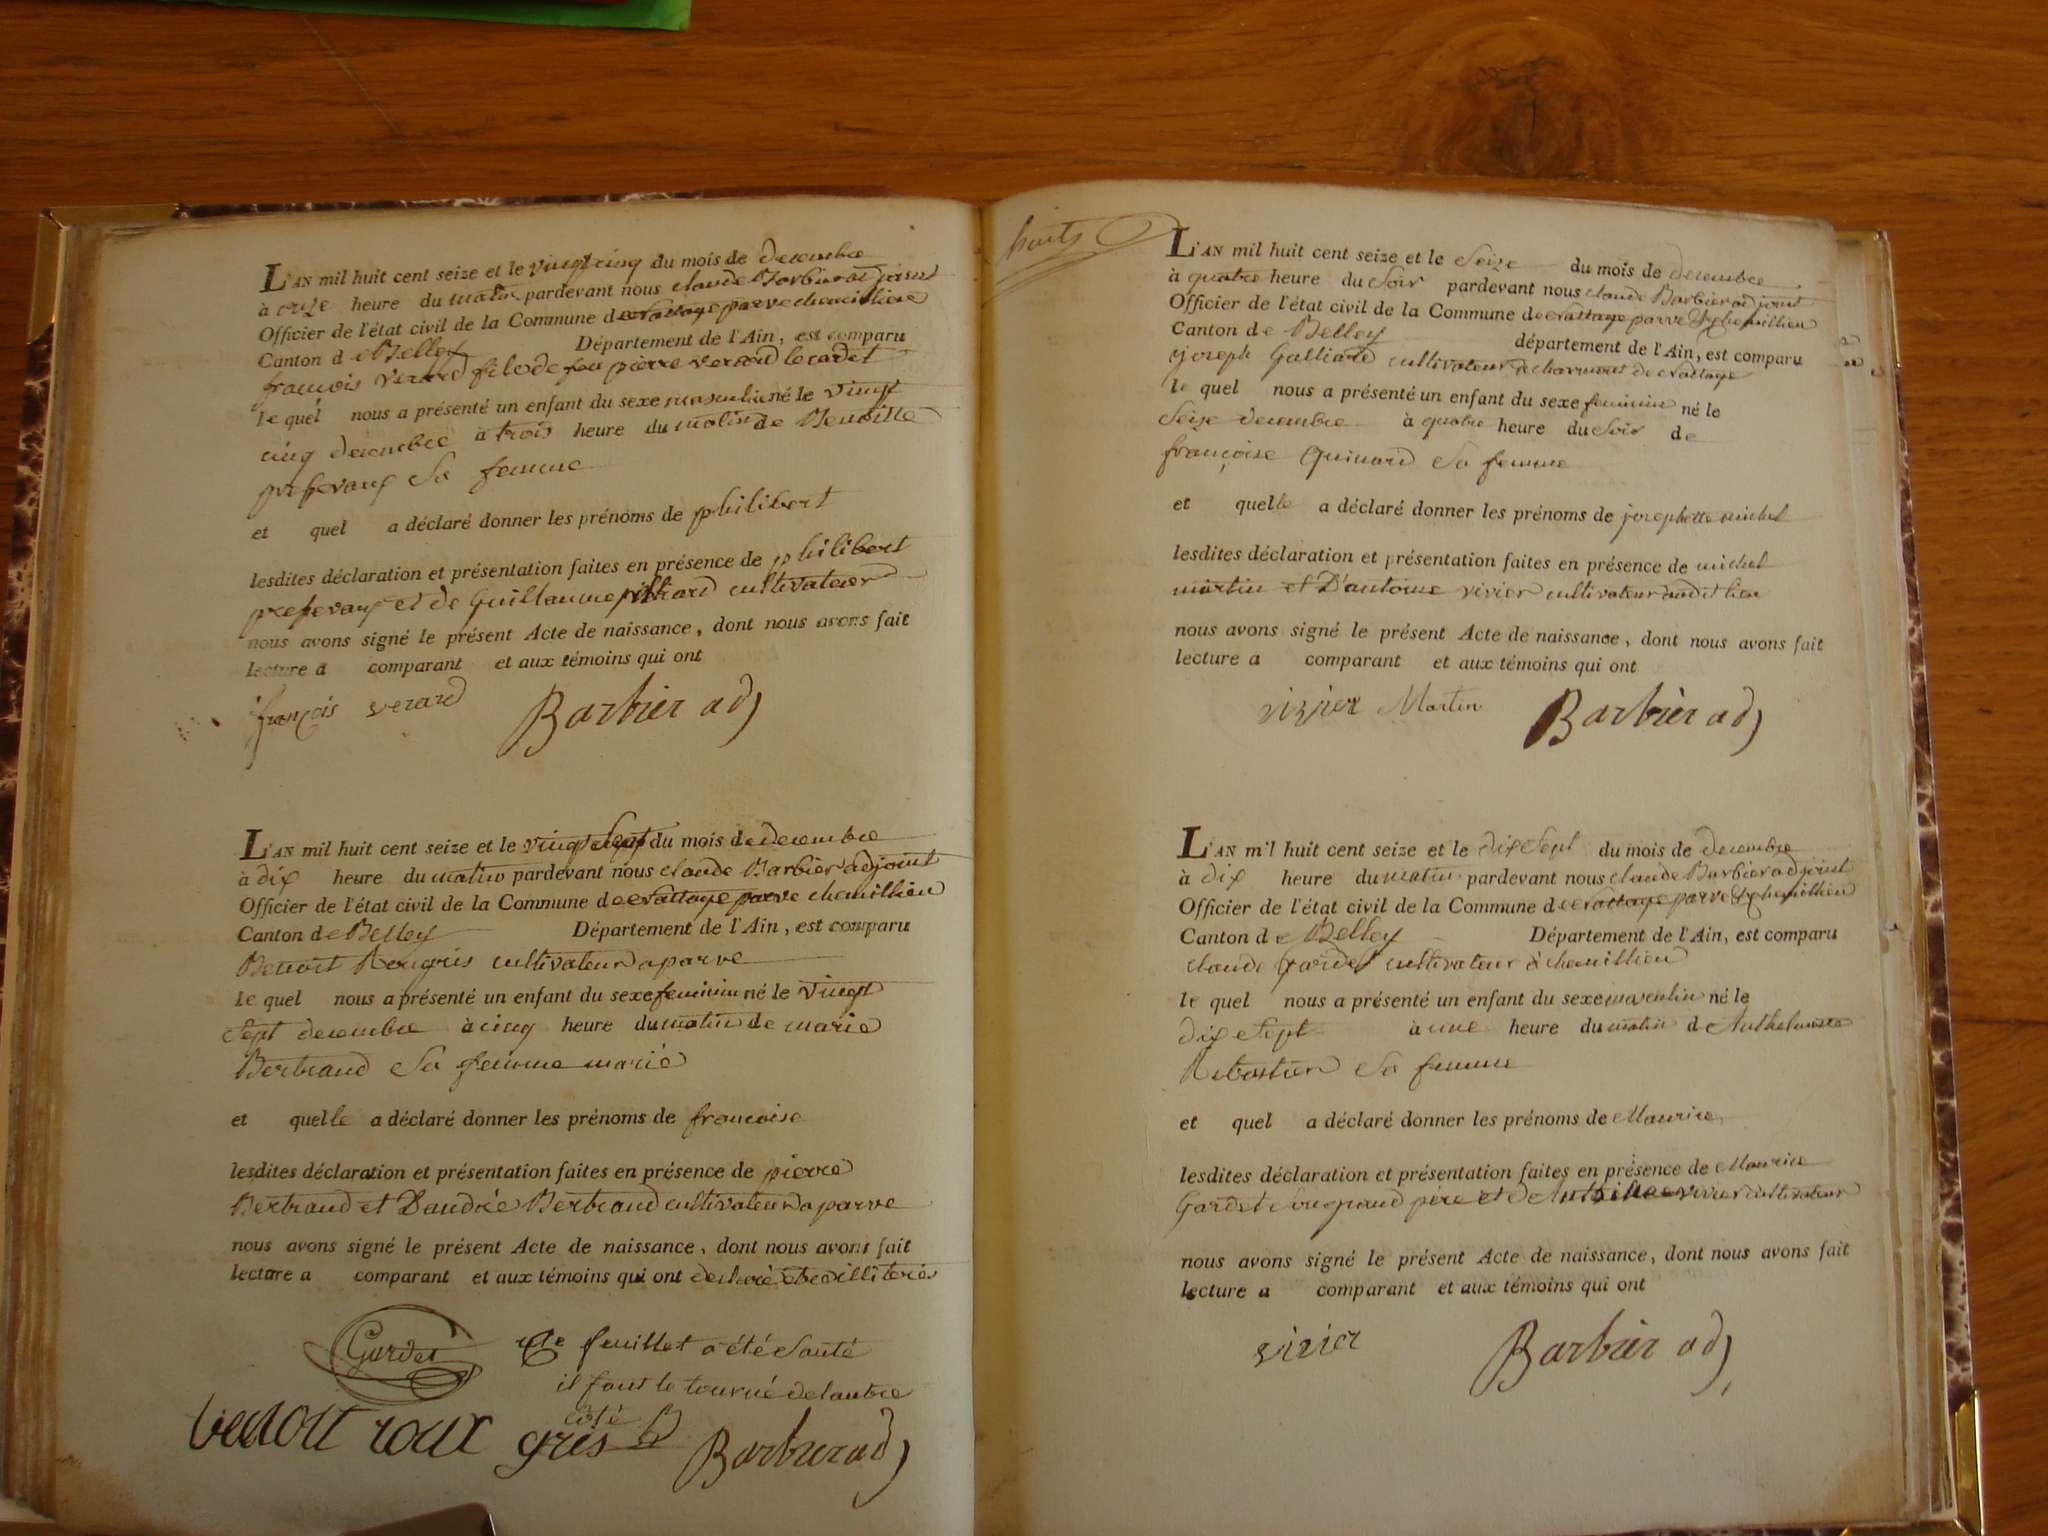 L'AN mil huit cent seize et le vingt cinq du mois de decembre
à onze heure du matin pardevant nous claude Barbier adjoint
Officier de l'état civil de la Commune de crattage parve chemillieu
Canton de Belley Département de l'Ain, est comparu
francois verard fils de feu pierre verard le cadet
le quel nous a présenté un enfant du sexe masculin né le vingt
cinq decembre à trois heure du matin de Benoitte
sa femme
et quel a déclaré donner les prénoms de philibert
lesdites déclaration et présentation faites en présence de philibert
et de Guillaume cultivateur
nous avons signé le présent Acte de naissance, dont nous avons fait
lecture a comparant et aux témoins qui ont
françois verard Barbier adj
L'AN mil huit cent seize et le vingt Sept du mois de decembre
à dix heure du matin pardevant nous claude Barbier adjoint
Officier de l'état civil de la Commune de crattage parve chemillieu
Canton de Belley Département de l'Ain, est comparu
Benoit Rougris cultivateur a parve
le quel nous a présenté un enfant du sexe feminin né le vingt
Sept decembre à cinq heure du matin de marie
Bertrand Sa femme marié
et quelle a déclaré donner les prénoms de francoise
lesdites déclaration et présentation faites en présence de pierre
Bertrand et D'andrée Bertrand cultivateur a parve
nous avons signé le présent Acte de naissance, dont nous avons fait
lecture a comparant et aux témoins qui ont declaré etre illiterés
Gardet feuillet a été Sauté
il faut le tourné de lautre
côté
benoit roux gris Barbier adj
L'AN mil huit cent seize et le Seize du mois de decembre
à quatre heure du Soir pardevant nous claude Barbier adjoint
Officier de l'état civil de la Commune de crattage parve & chemillieu
Canton de Belley département de l'Ain, est comparu
joseph Galliard cultivateur de crattage
le quel nous a présenté un enfant du sexe feminin né le
Seize decembre à quatre heure du Soir de
françoise Guinard Sa femme
et quelle a déclaré donner les prénoms de josephette michel
lesdites déclaration et présentation faites en présence de michel
martin et D'antoine vivier cultivateur audit lieu
nous avons signé le présent Acte de naissance, dont nous avons fait
lecture a comparant et aux témoins qui ont
vivier Martin Barbier adj
L'AN mil huit cent seize et le dix Sept du mois de decembre
à dix heure du matin pardevant nous claude Barbier adjoint
Officier de l'état civil de la Commune de crattage parve & chemillieu
Canton de Belley Département de l'Ain, est comparu
claude Gardet cultivateur à chemillieu
le quel nous a présenté un enfant du sexe masculin né le
dix Sept à une heure du matin d Anthelmette
Sa femme
et quel a déclaré donner les prénoms de Maurice
lesdites déclaration et présentation faites en présence de Maurice
Gardet Son grand père et vivier cultivateur
nous avons signé le présent Acte de naissance, dont nous avons fait
lecture a comparant et aux témoins qui ont
vivier Barbier adj